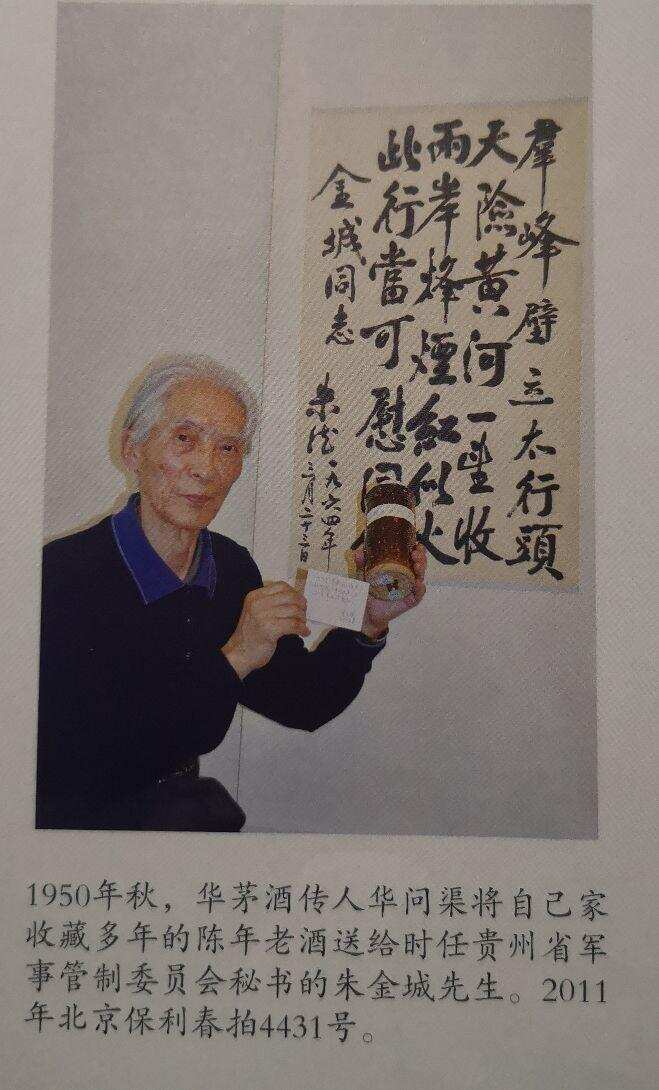 羣峰壁立太行頭
天險黃河一望收
兩岸烽煙紅似火
此行當可慰同
金城同志
朱德一九六四年
三月二十三日
1950年秋，华茅酒传人华问渠将自己家
收藏多年的陈年老酒送给时任贵州省军
事管制委员会秘书的朱金城先生。2011
年北京保利春拍4431号。